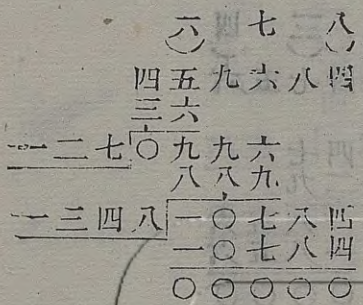 六 七 八
四五九六八四
三六
一二七〇九九六
八八九
一三四八一〇七八四
一〇七八四
〇〇〇〇〇